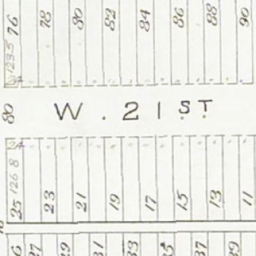 76 78 80 82 84 86 88 90
123.5
24
80 W. 21 ST.
24
126.8
25 23 21 19 17 15 13 11
27 29 31 33 35 37 39